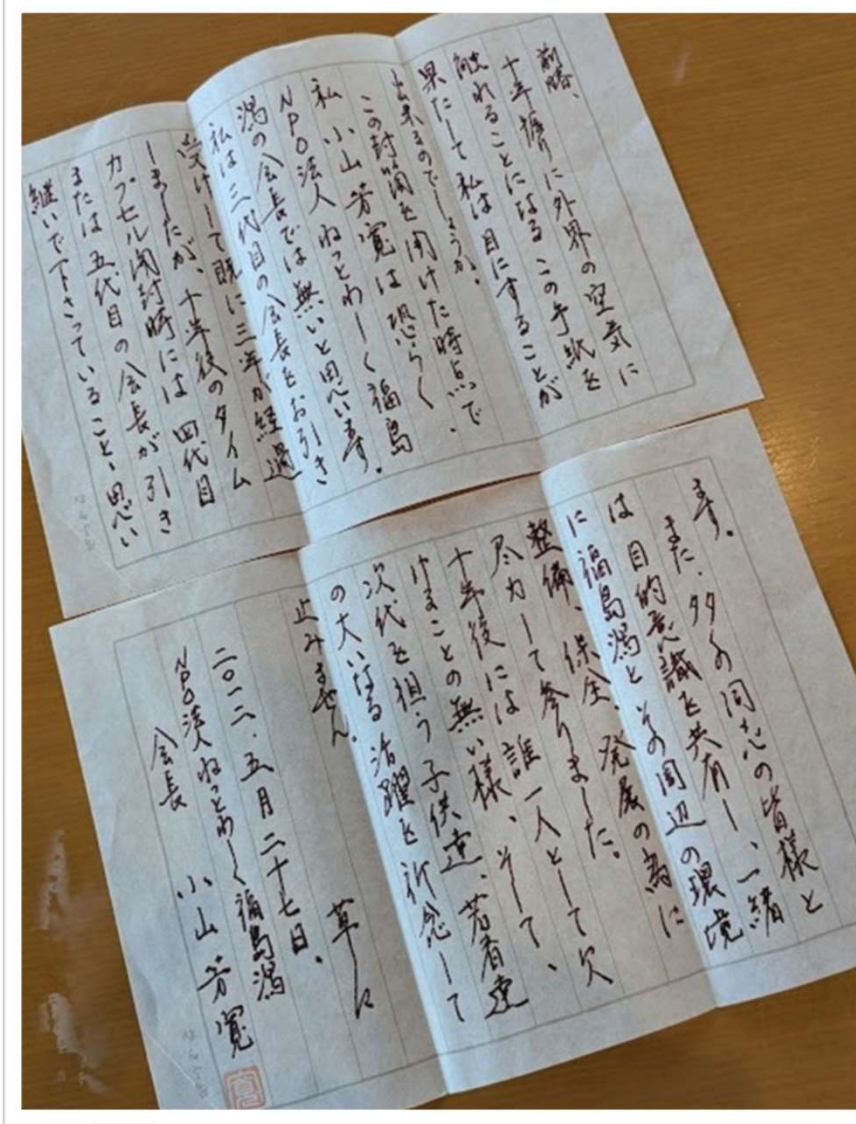 前略、
十年振りに外界の空気に
触れることになるこの手紙を
果たして私は目にすることが
出来るのでしょうか。
この封筒を開けた時点で、
私 小山芳寛は恐らく
NPO法人 ねっとわーく福島
潟の会長では無いと思います。
私は三代目の会長をお引き
受けして既に三年が経過
しましたが、十年後のタイム
カプセル開封時には 四代目
または 五代目の会長が引き
継いで下さっていること、思い
ます。
また、多々の同志の皆様と
は目的意識を共有し、一緒
に福島潟とその周辺の環境
整備、保全、発展の為に
尽力して参りました。
十年後には誰一人として欠
けることの無い様、そして、
次代を担う子供達、若者達
の大いなる活躍を祈念して
止みません。
草々
二〇一二、五月二十七日、
NPO法人ねっとわーく福島潟
会長 小山芳寛